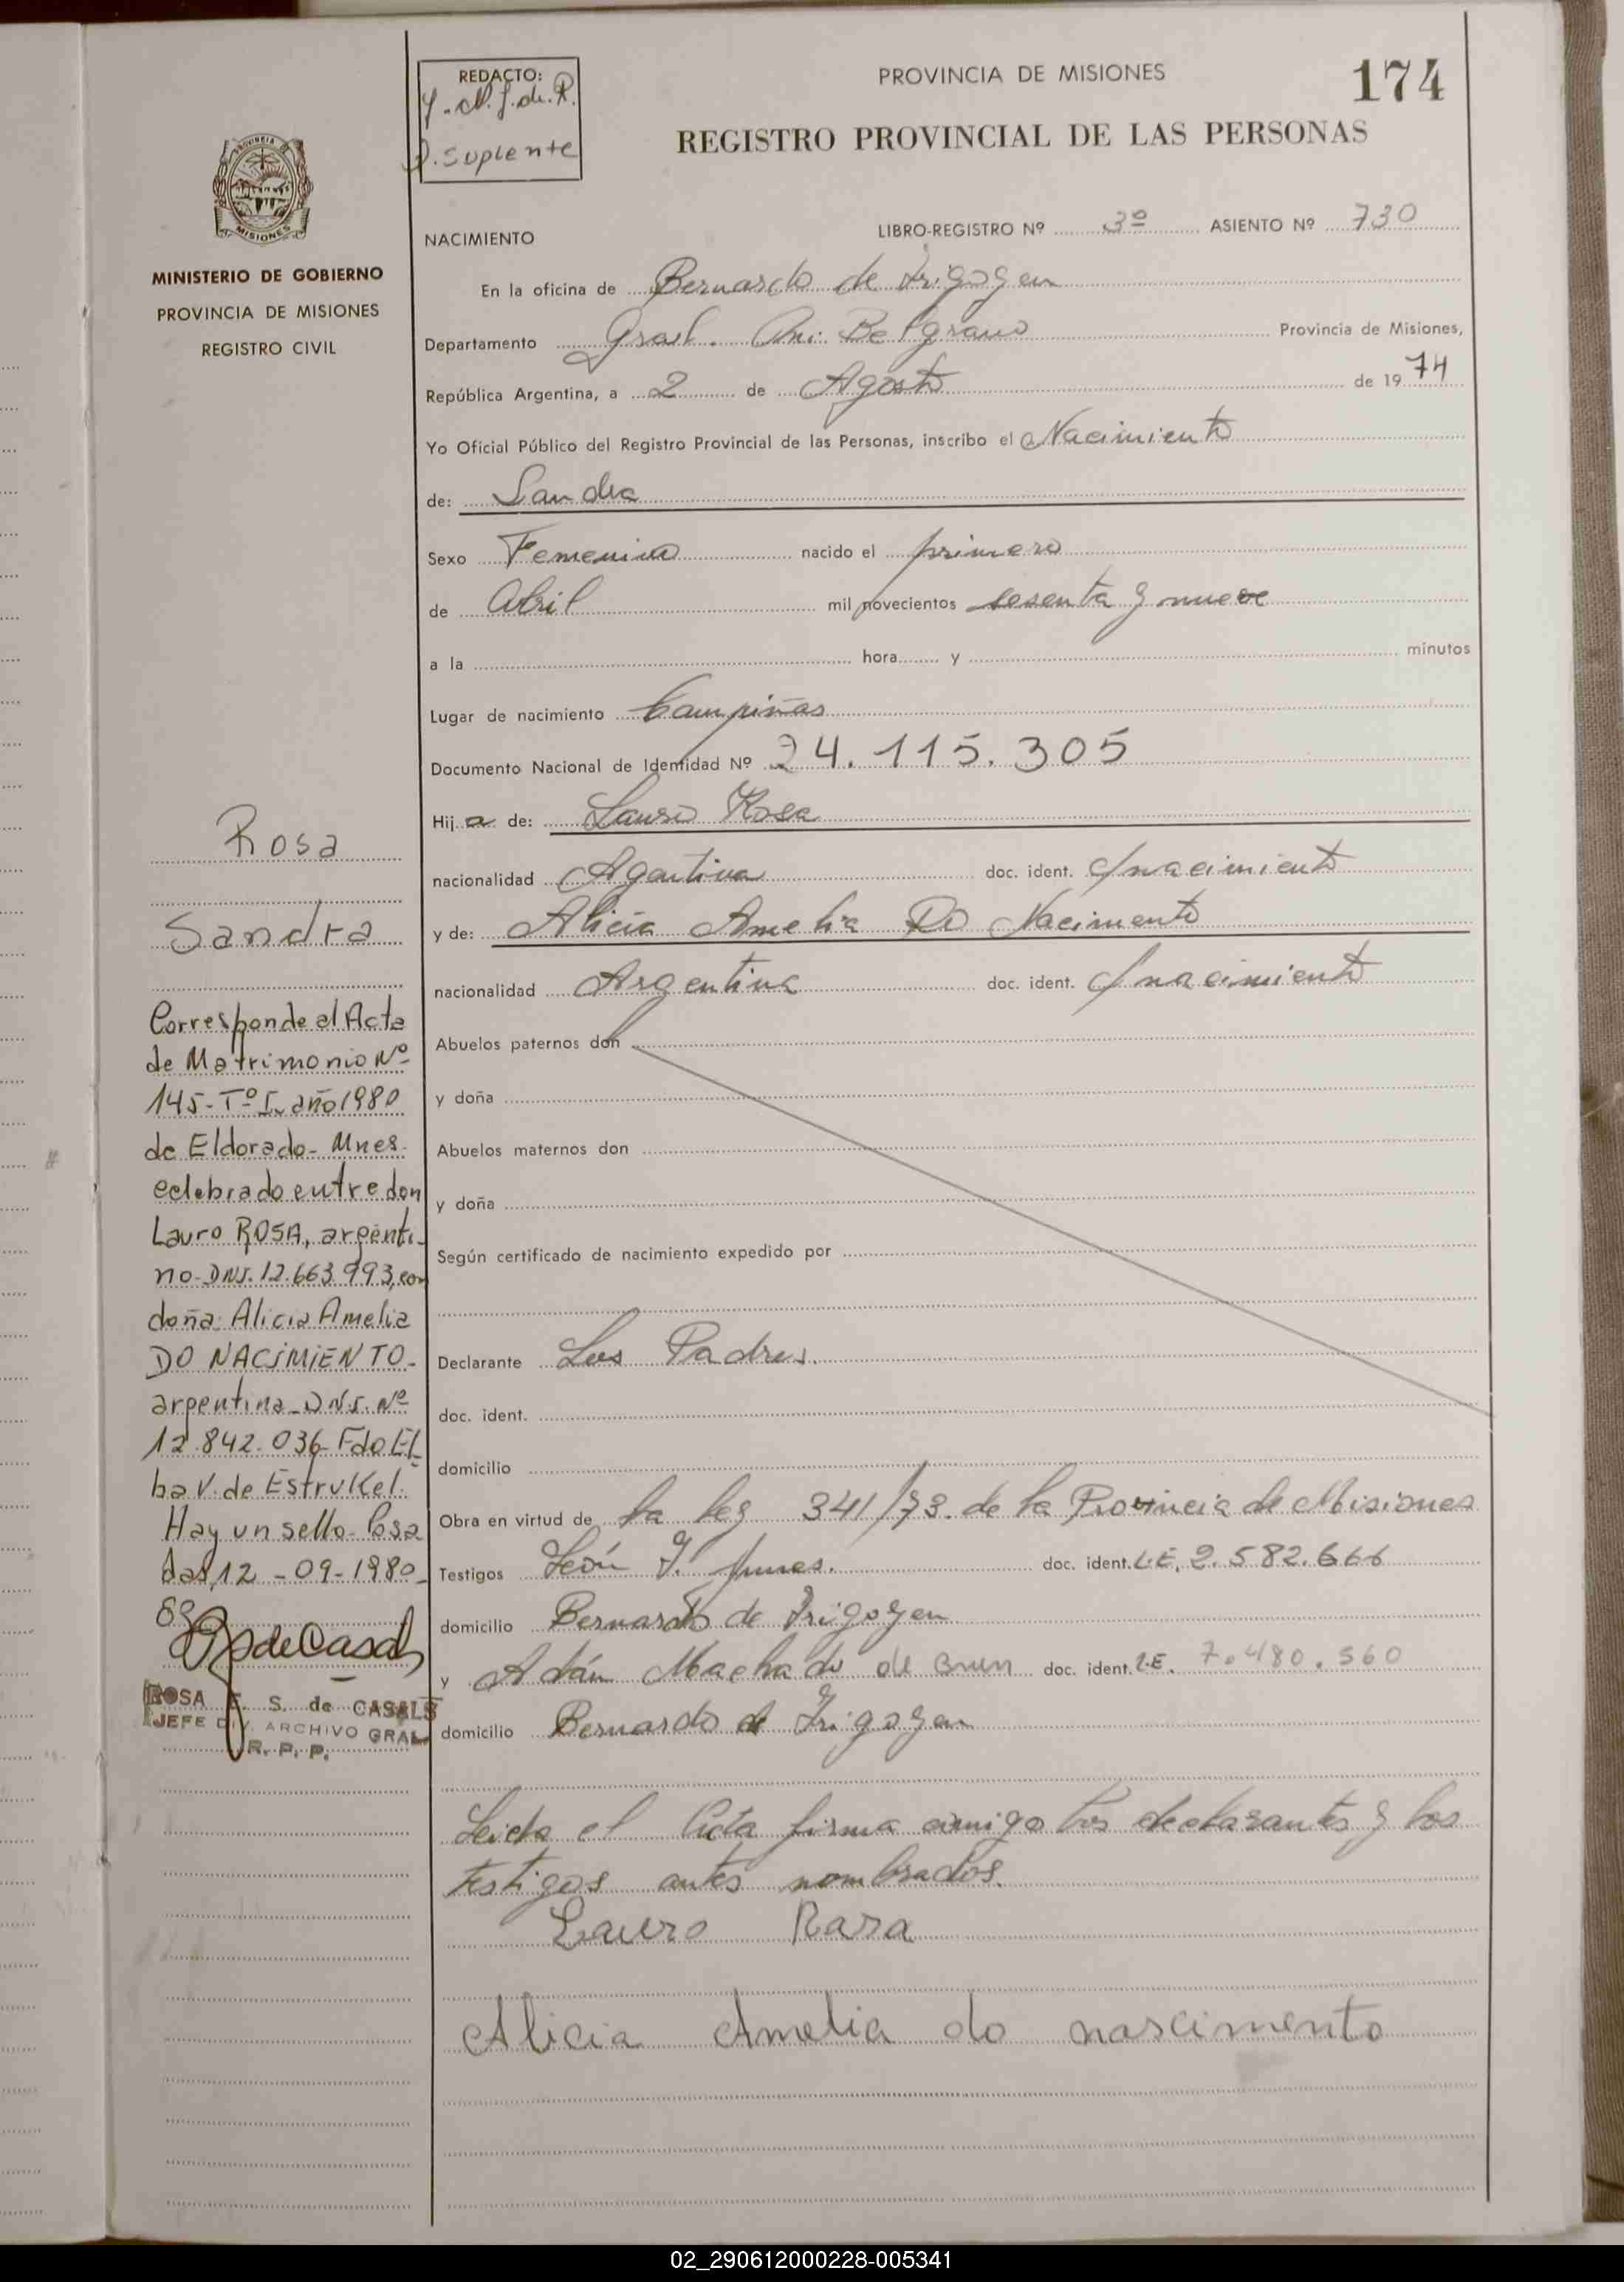 REDACTO:
D. Suplente
PROVINCIA DE MISIONES
174
REGISTRO PROVINCIAL DE LAS PERSONAS
PROVINCIA DE MISIONES
MINISTERIO DE GOBIERNO
PROVINCIA DE MISIONES
REGISTRO CIVIL
NACIMIENTO
LIBRO-REGISTRO Nº 3º ASIENTO Nº 730
En la oficina de Bernardo de Irigoyen
Departamento Gral. Belgrano Provincia de Misiones,
República Argentina, a 2 de Agosto de 1974
Yo Oficial Público del Registro Provincial de las Personas, inscribo el Nacimiento
de: Sandra
Sexo Femenina nacido el primero
de Abril mil novecientos sesenta y nueve
a la hora y minutos
Lugar de nacimiento Campiñas
Documento Nacional de Identidad Nº 24.115.305
Hija de: Lauro Rosa
nacionalidad Agentina doc. ident. c/nacimiento
y de: Alicia Amelia Do Nacimento
nacionalidad Argentina doc. ident. c/nacimiento
Abuelos paternos don
y doña
Abuelos maternos don
y doña
Según certificado de nacimiento expedido por
Declarante Los Padres.
doc. ident.
domicilio
Obra en virtud de la ley 341/73. de la Provincia de Misiones
Testigos León doc. ident. L.E. 2.582.666
domicilio Bernardo de Irigoyen
y Adán Machado de doc. ident. L.E. 7.480.560
domicilio Bernardo de Irigoyen
Leida el Acta firma conmigo los declarantes y los
testigos antes nombrados.
Lauro Rasa
Alicia Amelia do nascimento
Rosa
Sandra
Corresponde al Acta
de Matrimonio Nº
145-Tº I. año 1980
de Eldorado-Mnes.
celebrado entre don
Lauro ROSA, argenti-
no-DNI.12.663.993,con
doña: Alicia Amelia
DO NACIMIENTO-
argentina-DNI.Nº
12.842.036-Fdo El-
ba V. de Estrukel.
Hay un sello-Posa
das,12-09-1980-
deCasals
ROSA E. S. de CASALS
JEFE DIV. ARCHIVO GRAL.
R. P. P.
02_290612000228-005341